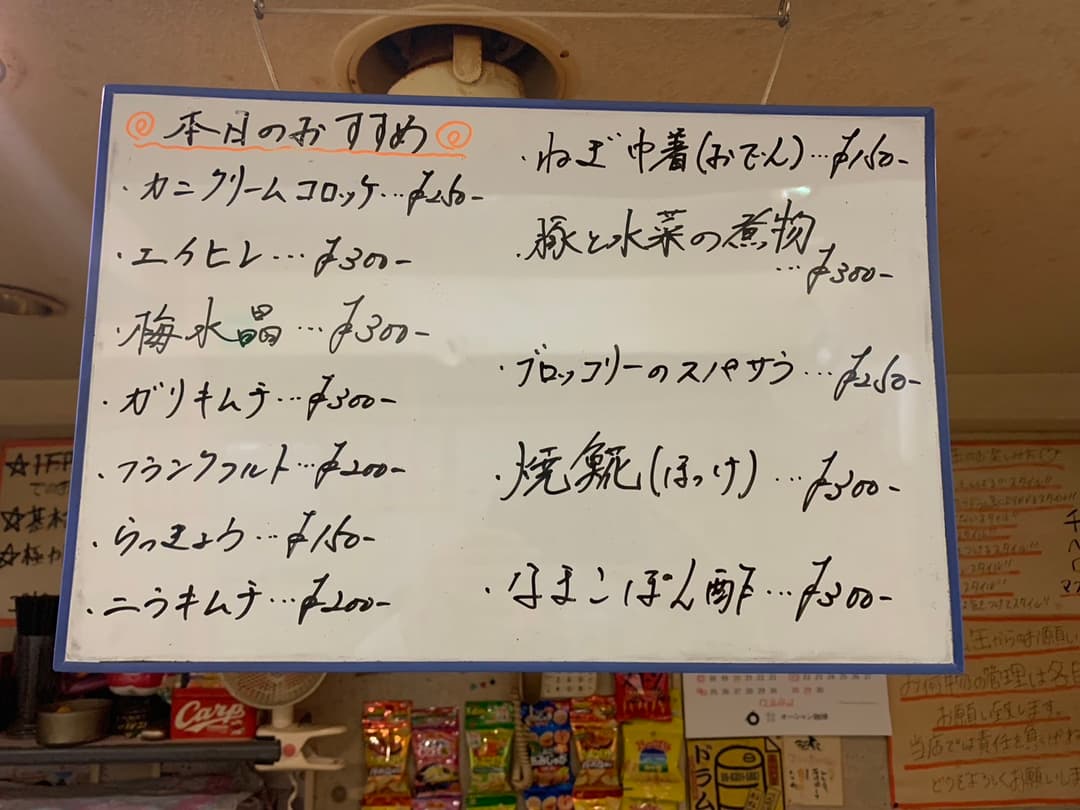 本日のおすすめ
・カニクリームコロッケ…¥250-
・エイヒレ…¥300-
・梅水晶…¥300-
・ガリキムチ…¥300-
・フランクフルト…¥200-
・らっきょう…¥150-
・ニラキムチ…¥200-
・ねぎ巾着(おでん)…¥150-
・豚と水菜の煮物
…¥300-
・ブロッコリーのスパサラ…¥250-
・焼𩸽(ほっけ)…¥300-
・なまこぽん酢…¥300-
☆基本
Carp
ドラム
の管理は各自
お願い致します。
当店では責任を